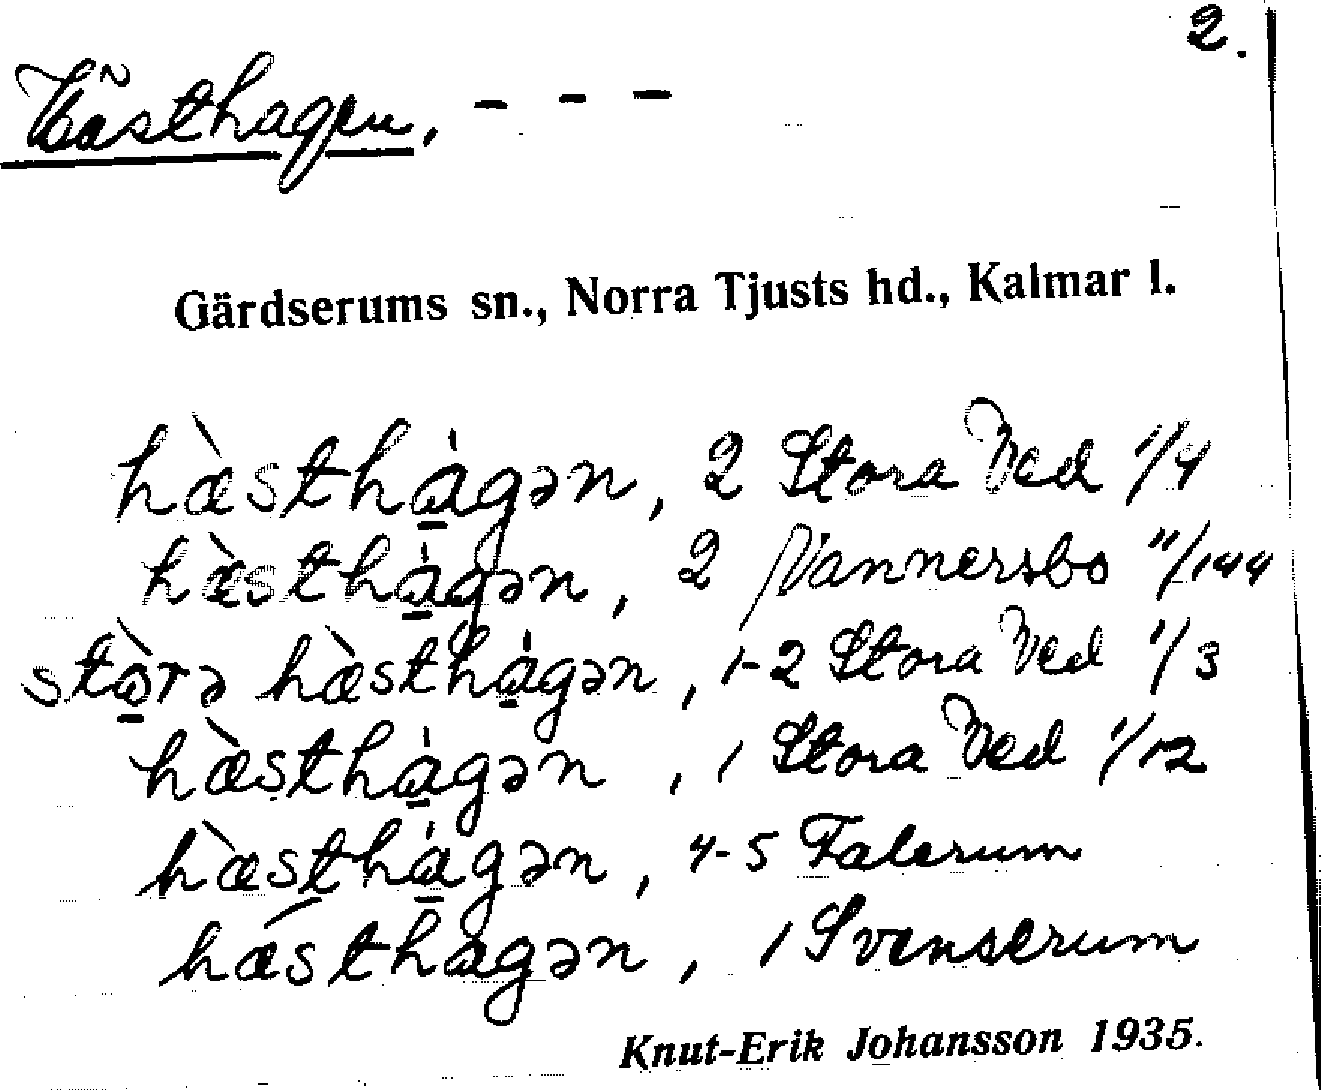 2.
Hästhagen, - - -
Gärdserums sn., Norra Tjusts hd., Kalmar l.
hæ̀sthàgən, 2 Stora Ved 1/4
hæ̀sthàgən, 2 Vannersbo 11/144
stòrə hæ̀sthàgən, 1-2 Stora Ved 1/3
hæ̀sthàgən, 1 Stora Ved 1/12
hæ̀sthàgən, 4-5 Falerum
hǽsthagən, 1 Svenserum
Knut-Erik Johansson 1935.